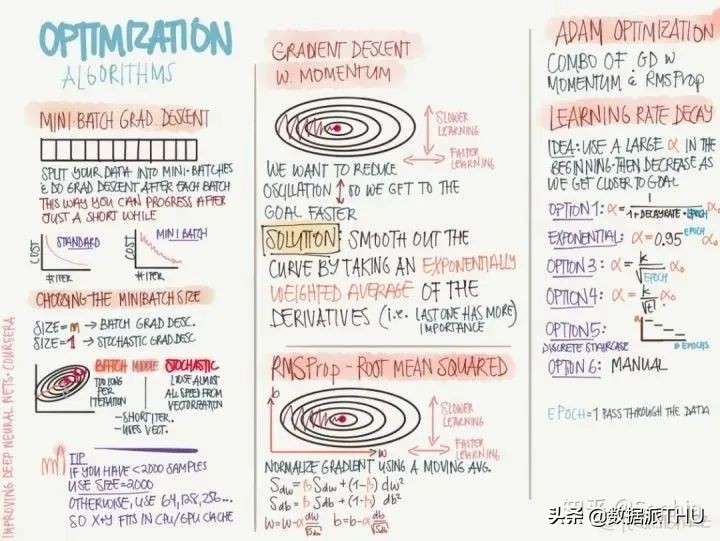 OPTIMIZATION
ALGORITHMS
MINI-BATCH GRAD. DESCENT
SPLIT YOUR DATA INTO MINI-BATCHES
& DO GRAD DESCENT AFTER EACH BATCH
THIS WAY YOU CAN PROGRESS AFTER
JUST A SHORT WHILE
COST
STANDARD
# ITER
COST
MINI BATCH
# ITER
CHOOSING THE MINIBATCH SIZE
SIZE=m → BATCH GRAD DESC.
SIZE=1 → STOCHASTIC GRAD DESC.
BATCH
TOO LONG
PER
ITERATION
MIDDLE
STOCHASTIC
LOOSE ALMOST
ALL SPEED FROM
VECTORIZATION
-SHORT ITER.
-USES VECT.
TIP
IF YOU HAVE <2000 SAMPLES
USE SIZE=2000
OTHERWISE, USE 64, 128, 256...
SO X+Y FITS IN CPU/GPU CACHE
IMPROVING DEEP NEURAL NETS · COURSERA
GRADIENT DESCENT
W. MOMENTUM
SLOWER
LEARNING
FASTER
LEARNING
WE WANT TO REDUCE
OSCILLATION ↕ SO WE GET TO THE
GOAL FASTER
SOLUTION: SMOOTH OUT THE
CURVE BY TAKING AN EXPONENTIALLY
WEIGHTED AVERAGE OF THE
DERIVATIVES (i.e. LAST ONE HAS MORE)
IMPORTANCE
RMSProp - ROOT MEAN SQUARED
b
w
SLOWER
LEARNING
FASTER
LEARNING
NORMALIZE GRADIENT USING A MOVING AVG.
Sdw = β Sdw + (1-β) dw²
Sdb = β Sdb + (1-β) db²
w = w - α dw/√Sdw b = b - α db/√Sdb
ADAM OPTIMIZATION
COMBO OF GD W
MOMENTUM & RMSProp
LEARNING RATE DECAY
IDEA: USE A LARGE α IN THE
BEGINNING. THEN DECREASE AS
WE GET CLOSER TO GOAL
OPTION 1: α = 1/(1+DECAYRATE·EPOCH) α₀
EXPONENTIAL: α = 0.95^EPOCH α₀
OPTION 3: α = k/√EPOCH α₀
OPTION 4: α = k/√t α₀
OPTION 5:
DISCRETE STAIRCASE
α
# EPOCHS
OPTION 6: MANUAL
EPOCH = 1 PASS THROUGH THE DATA
头条 @数据派THU